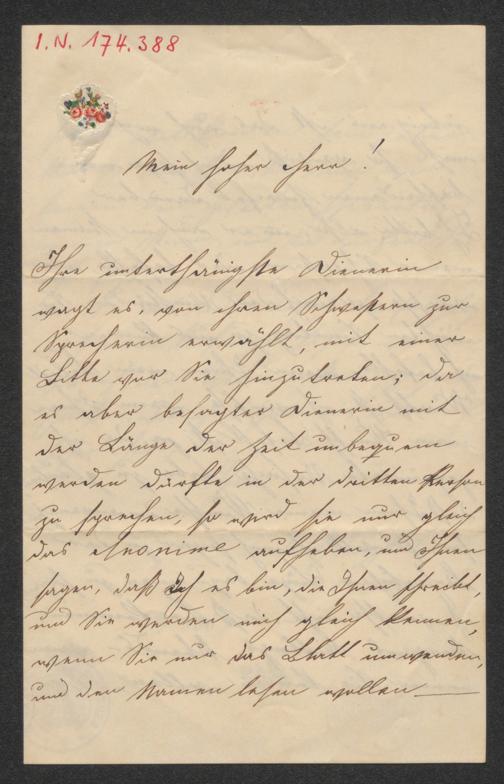 I.N. 174.388
Mein hoher Herr!
Ihre unterthänigste Dienerin
wagt es, von ihren Schwestern zur
Sprecherin erwählt, mit einer
Bitte vor Sie hinzutreten; da
es aber besagter Dienerin mit
der Länge der Zeit unbequem
werden dürfte in der dritten Person
zu sprechen, so wird sie nur gleich
das Anonime aufheben, und Ihnen
sagen, daß Ich es bin, die Ihnen schreibt,
und Sie werden mich gleich kennen,
wenn Sie nur das Blatt umwenden,
und den Namen lesen wollen —